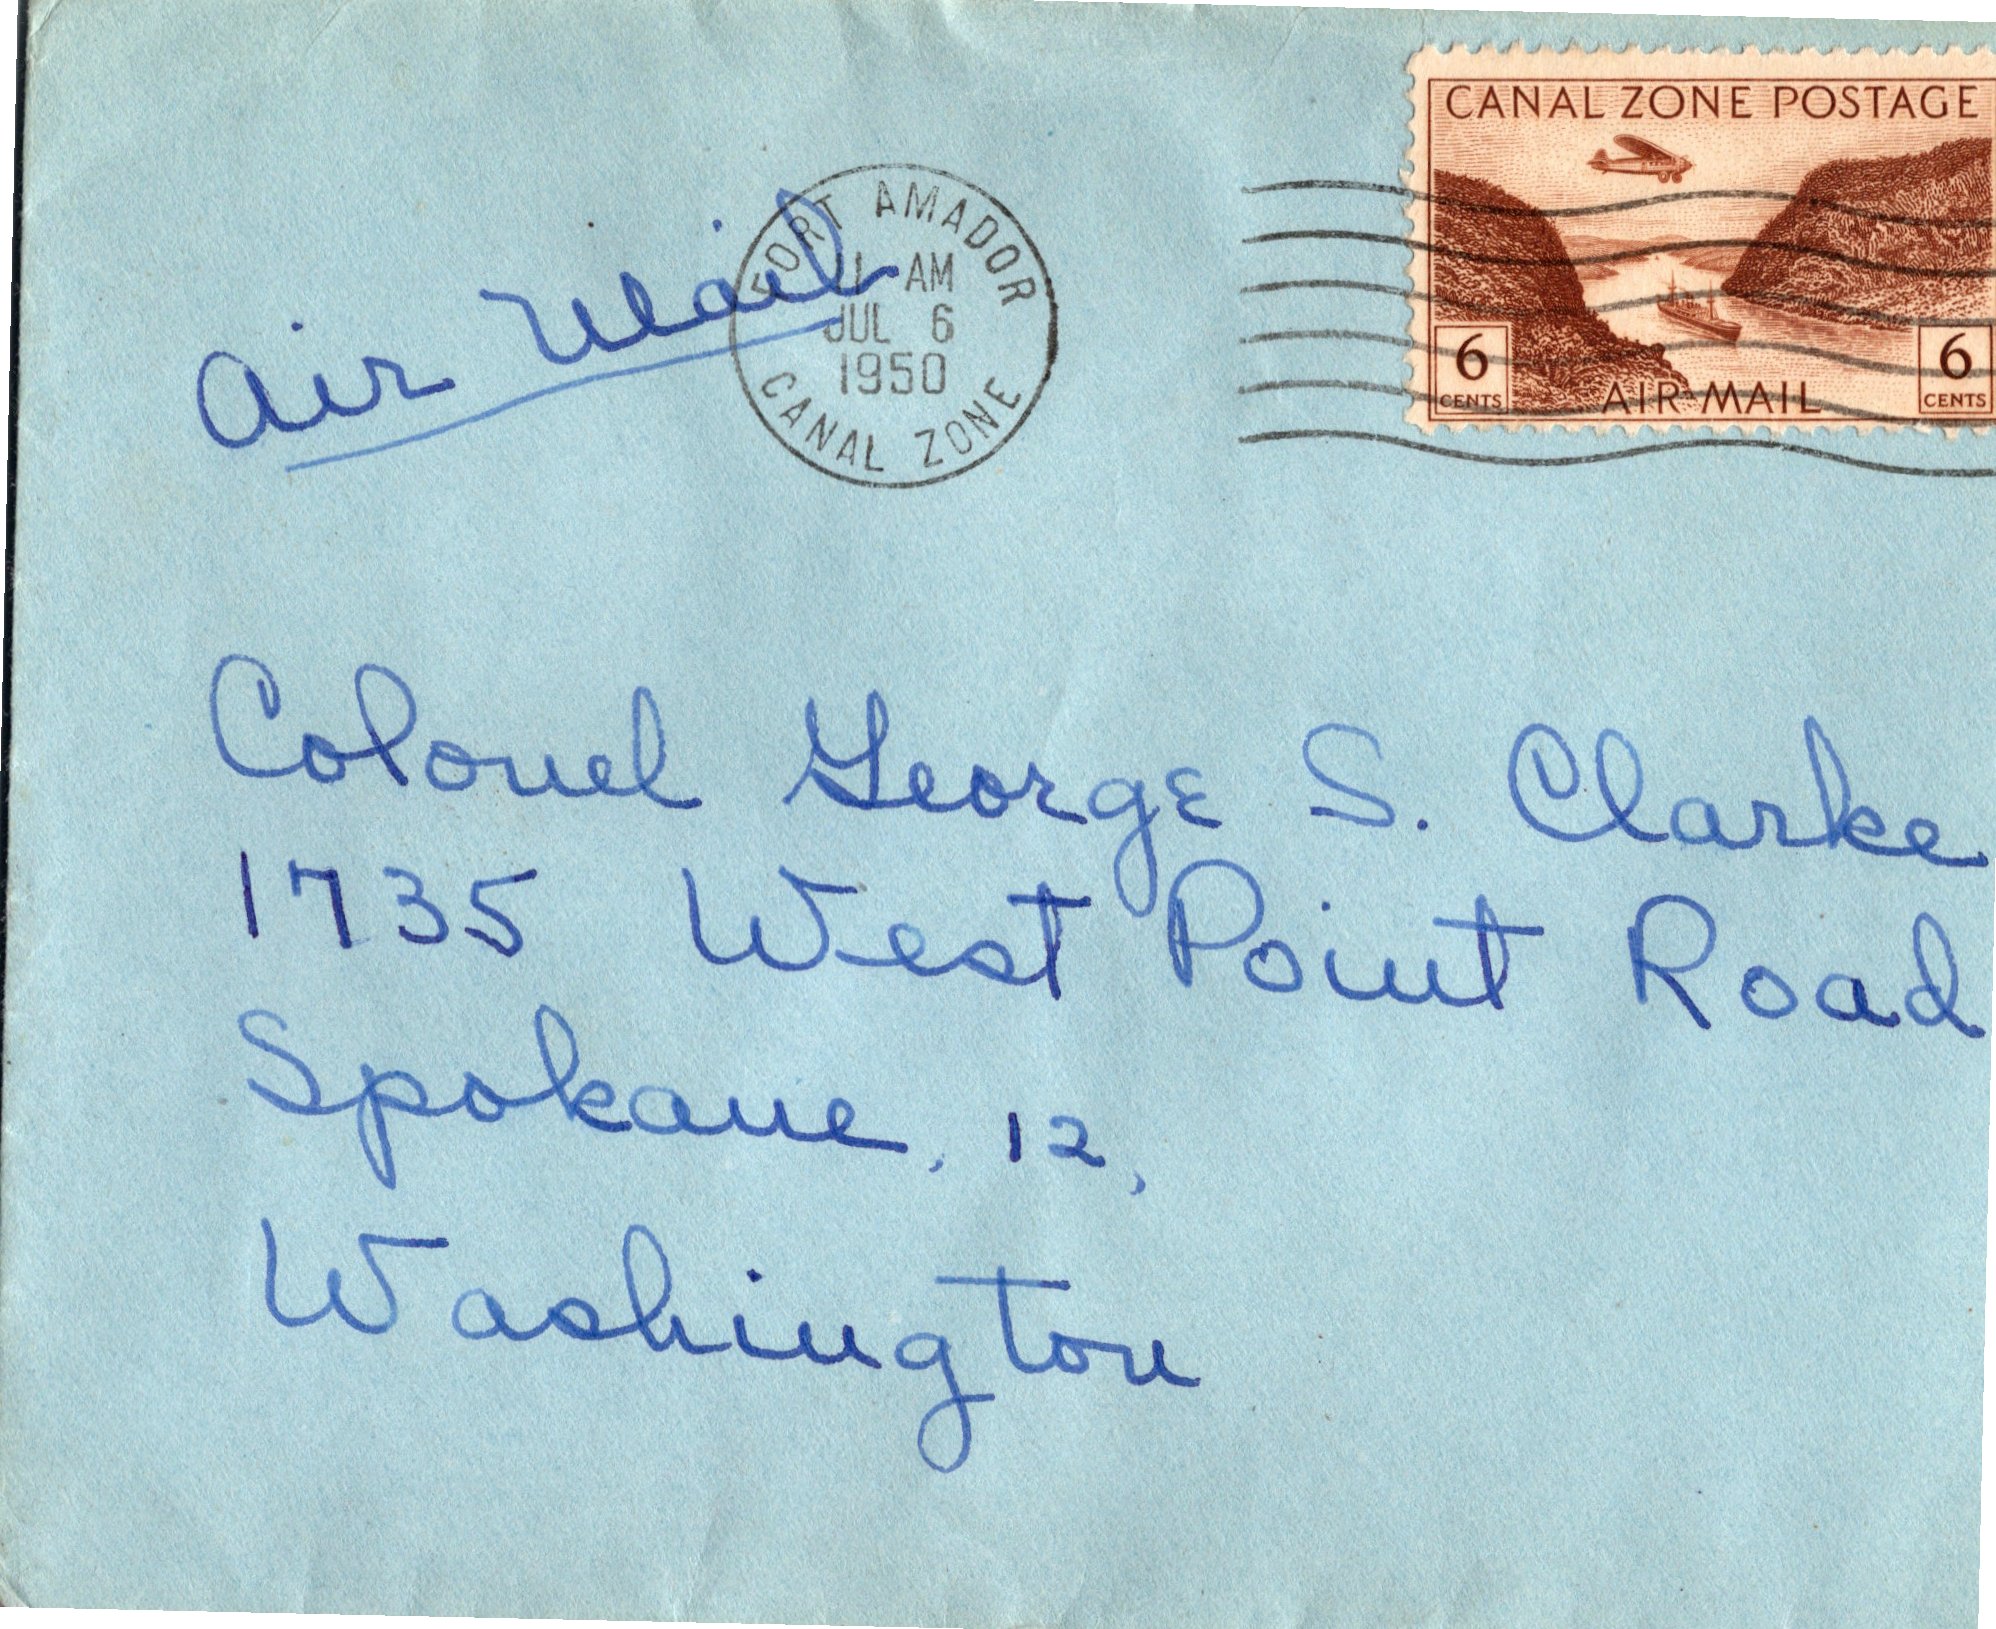 CANAL ZONE POSTAGE
6 CENTS AIR MAIL 6 CENTS
FORT AMADOR
11 AM
JUL 6
1950
CANAL ZONE
Air Mail
Colonel George S. Clarke
1735 West Point Road
Spokane, 12,
Washington